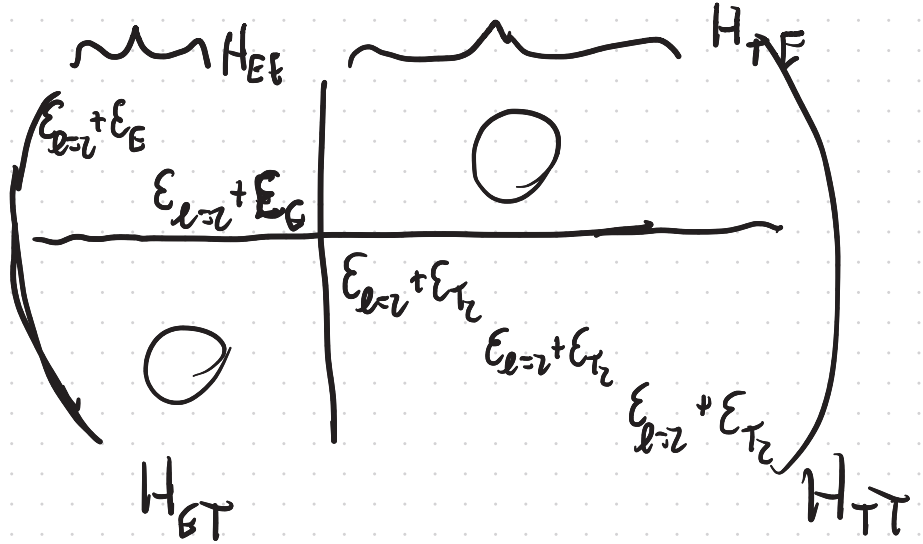 H_EE H_TE
ε_l=2 + ε_E
ε_l=2 + ε_E
ε_l=2 + ε_T2
ε_l=2 + ε_T2
ε_l=2 + ε_T2
H_ET H_TT